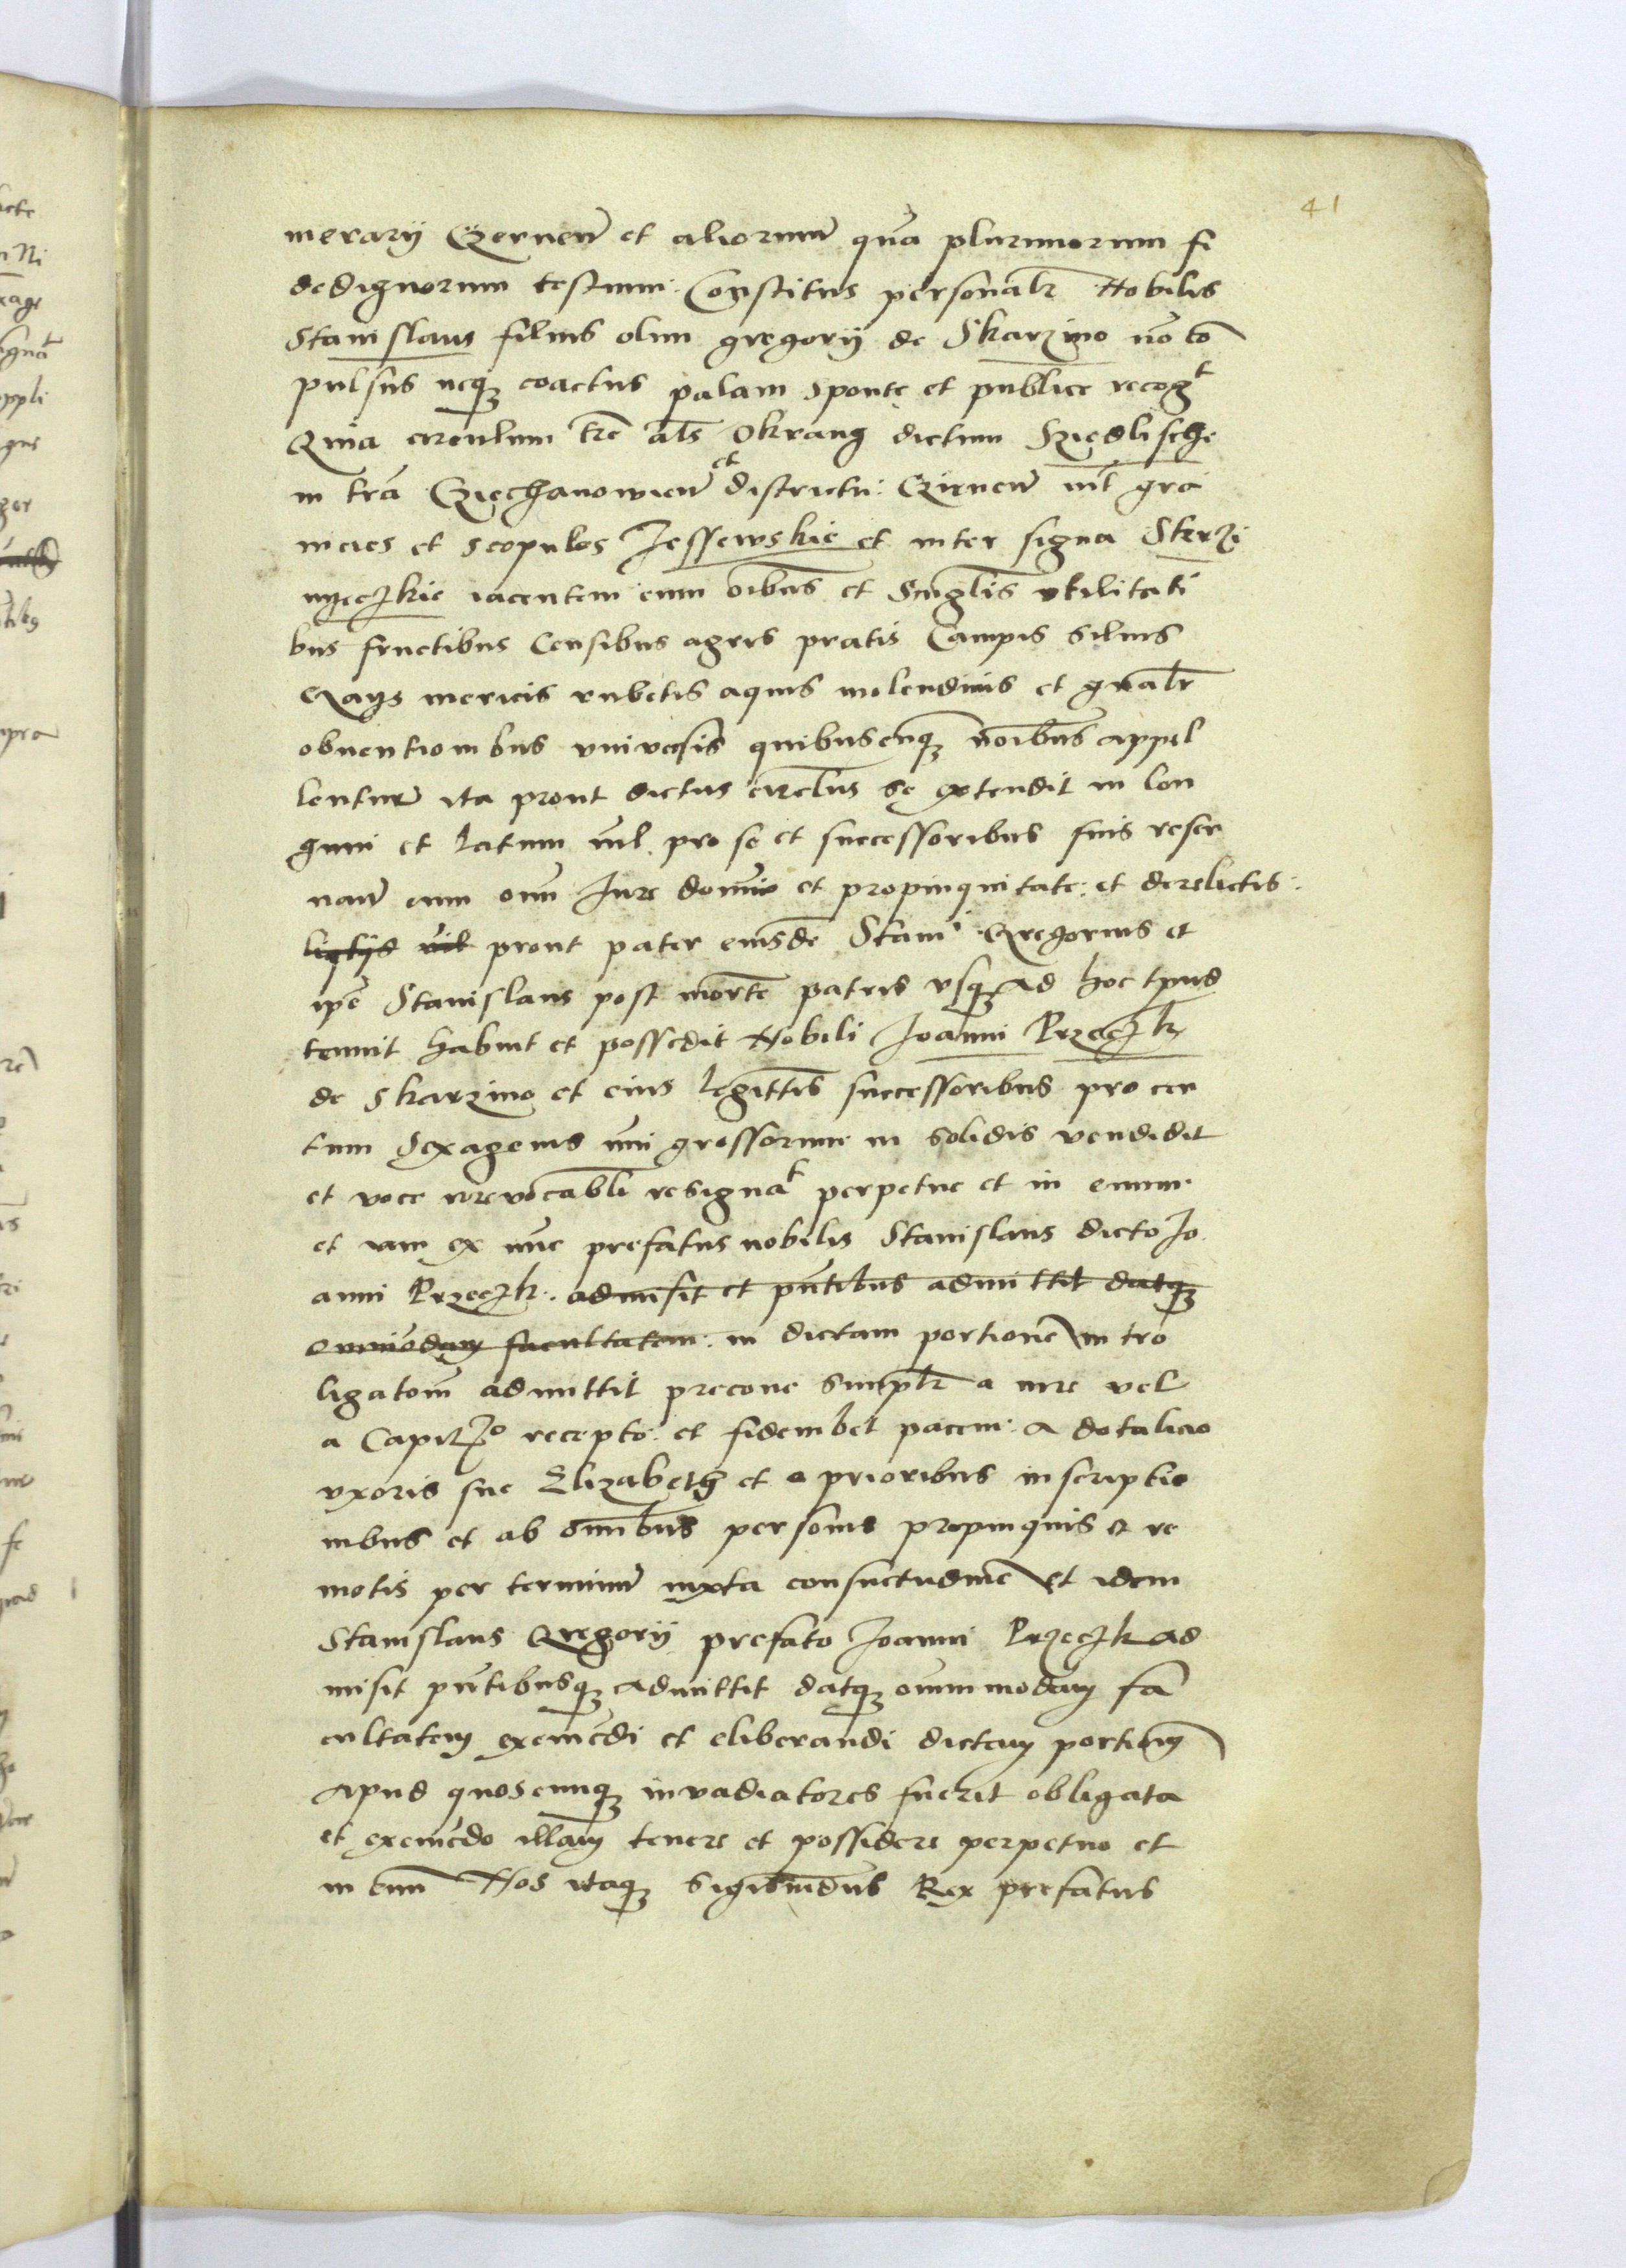 41
merarij Czernen et aliorum qua plurimorum fi
dedignorum testium Constitus personalr Nobilis
Stanislaus filius olim gregorij de Skarzino no co
pulsus neqz coactus palam sponte et publice recogt
Quia circulum tre als Okrang dictum Sziedlische
in tra Cziechanowien et districtu Czirnen int gra
nicies et scopulos Jessewskie et inter signa Skrzi
nyeczkie iacentem cum oibus et Singlis vtilitati
bus fructibus Censibus agris pratis Campis siluis
Gays mericis rubetis aquis molendinis et gnalr
obuentionibus vniuersis quibuscunqz noibus appel
lentur ita prout dictus circlus se extendit in lon
gum et latum nil pro se et successoribus suis reser
uan cum omi Jure domio et propinquitate et derelictis
prout pater eiusde Stani Gregorius et
ipe Stanislaus post morte patris vsqz ad hoc tpus
tenuit habuit et possedit Nobili Joanni Przeczk
de Skarzino et eius legittis successoribus pro cen
tum Sexagenis nui grossorum in solidis vendidit
et voce irreuocabli resignat perpetue et in euum
et iam ex nuc prefatus nobilis Stanislaus dicto Jo
anni Przeczk admisit et pntibus admittit datqz
omnimodam facultatem in dictam portione intro
ligatom admittit precone simplr a iure vel
a Capitzo recepto et fideiubet pacem a dotalicio
vxoris sue Elizabeth et a prioribus inscriptio
nibus et ab omnibus personis propinquis et re
motis per terminum iuxta consuetudine et idem
Stanislaus Gregorij prefato Joanni Przeczk ad
misit pntibusqz admittit datqz omnimodam fa
cultatem eximedi et eliberandi dictam portiong
apud quoscunqz inuadiatores fuerit obligata
et exemedo illam tenere et possidere perpetuo et
in euum Nos itaqz Sigismudus Rex prefatus